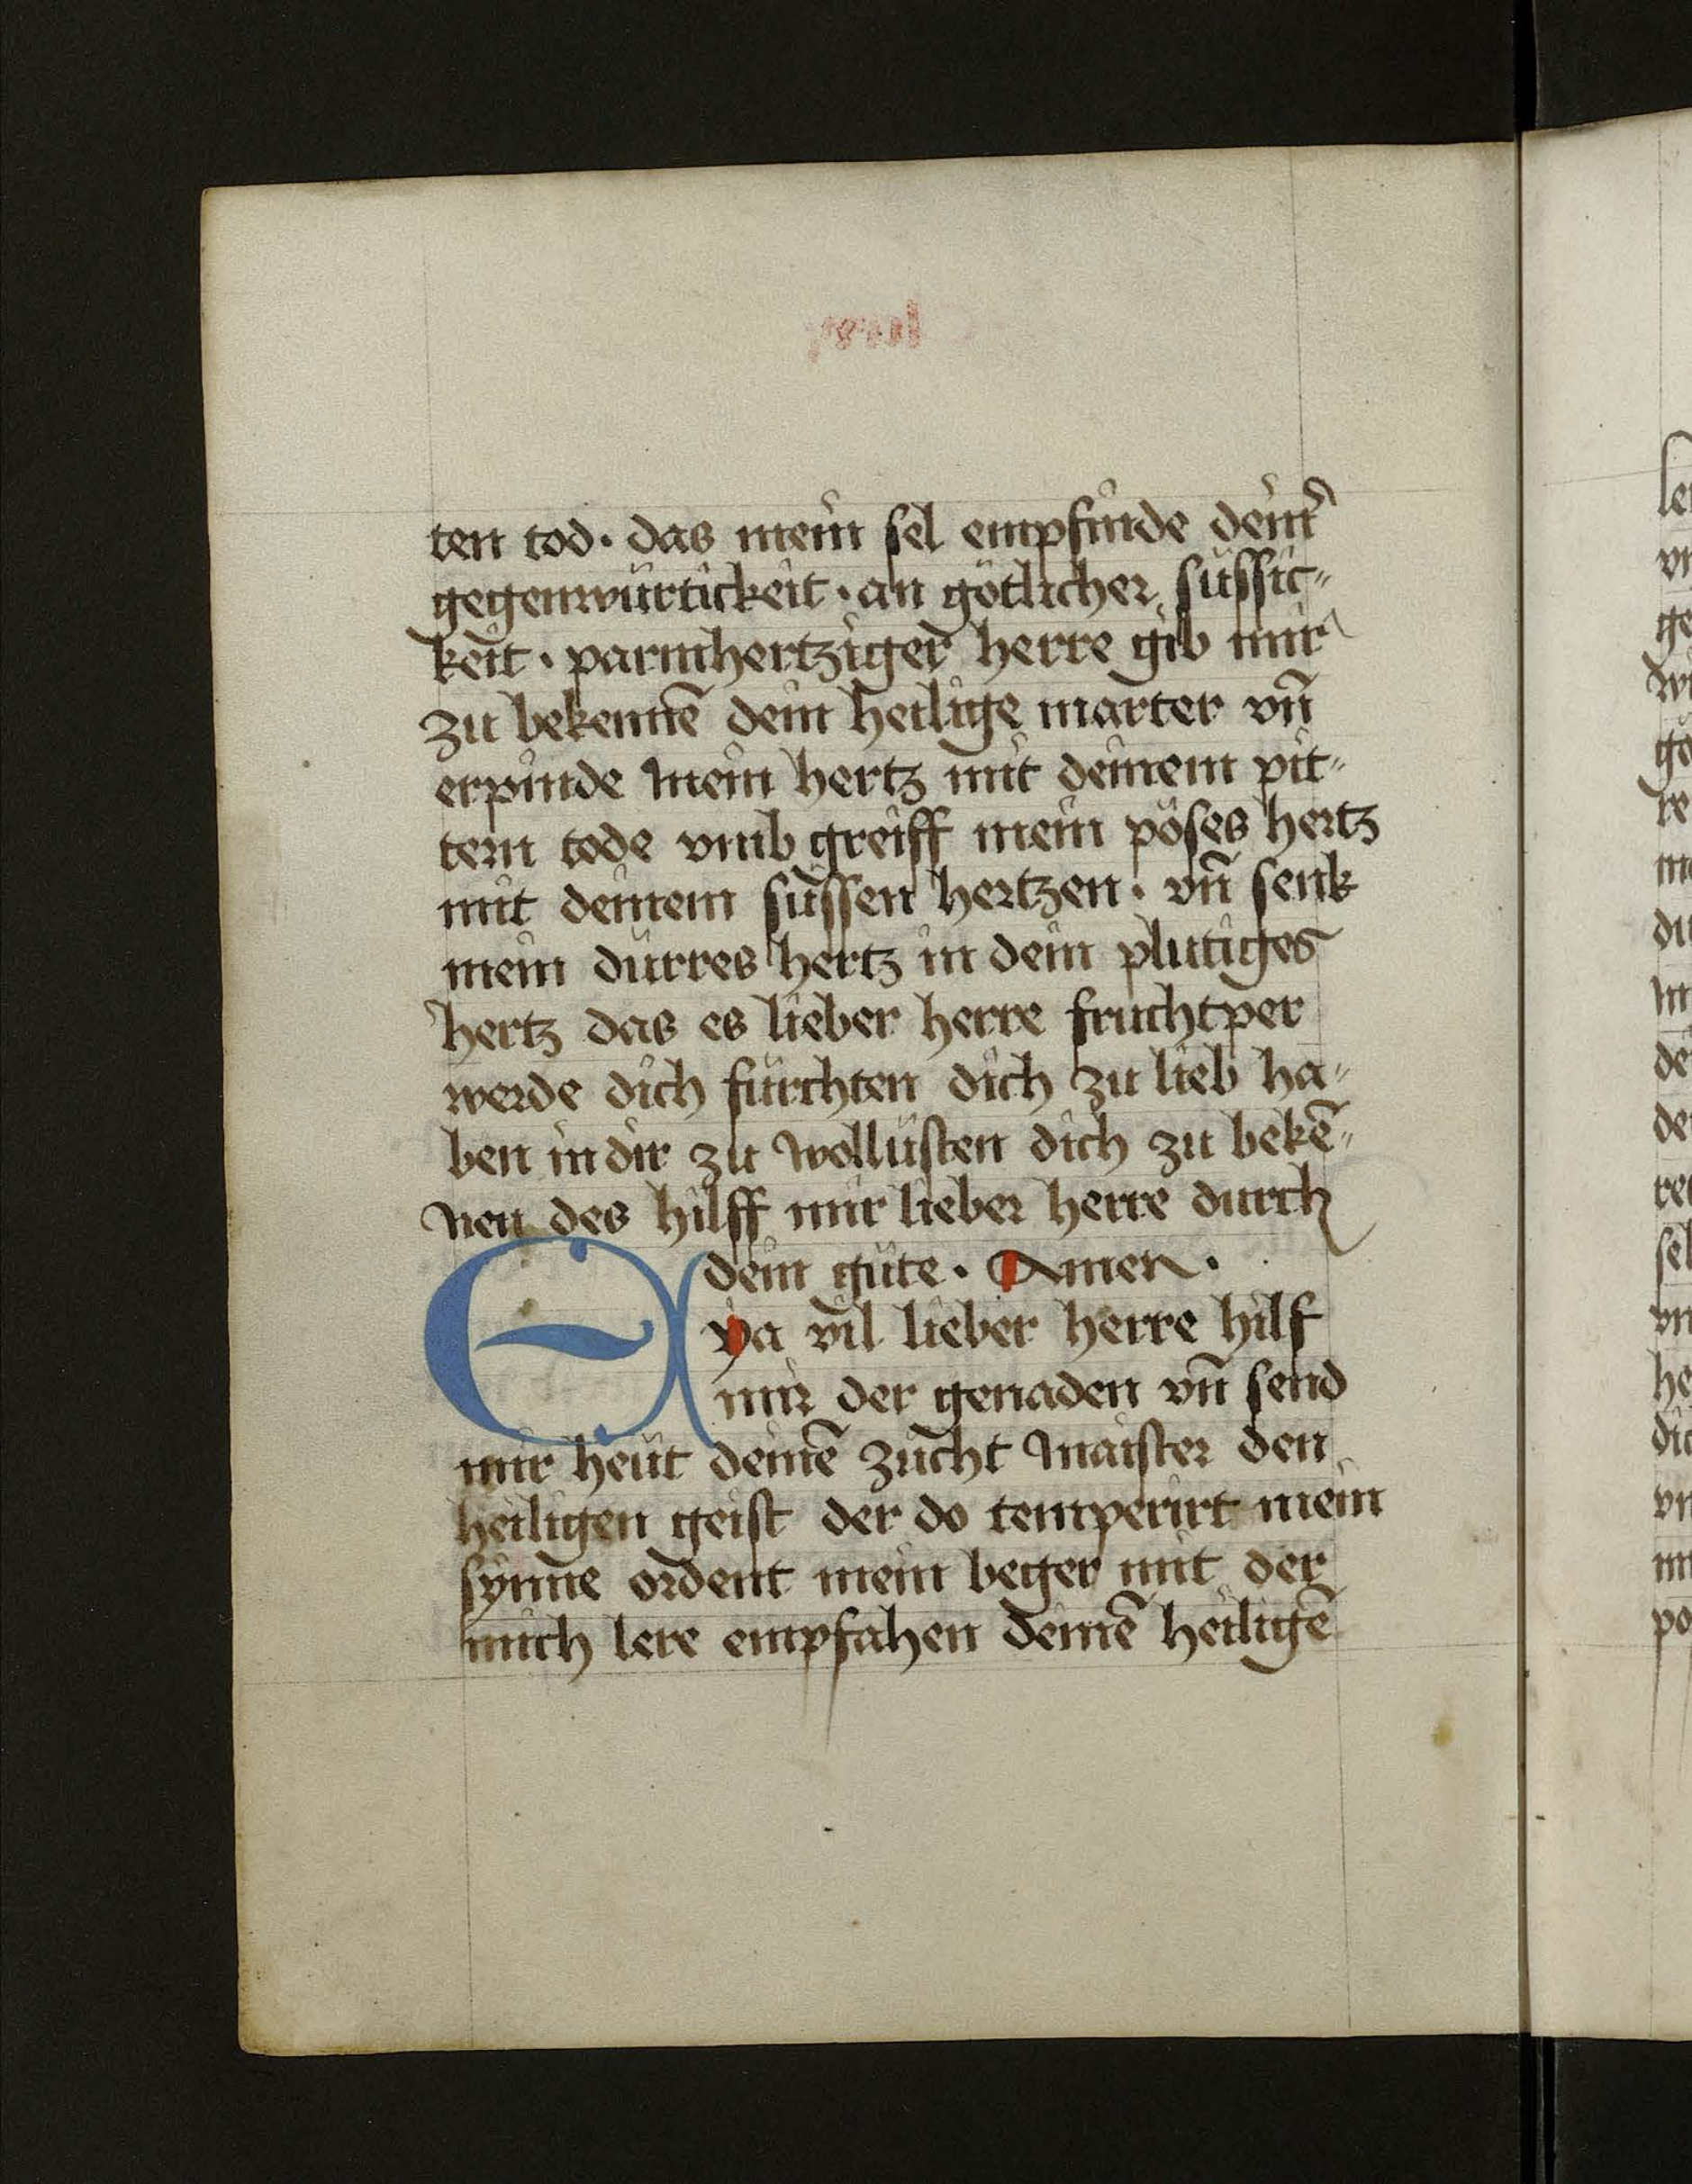 ten tod · das mein sel empfinde deinˀ
gegenwürtickeit · an götlicher süssic-
keit · parmhertziger herre gib mir
zu bekennē dein heilige marter vn̄
erpinde mein hertz mit deinem pit-
tern tode vmb greiff mein pöses hertz
mit deinem süssen hertzen · vn̄ senk
mein dürres hertz in dein plutiges
hertz das es lieber herre fruchtper
werde dich fürchten dich zu lieb ha-
ben in dir zu wollüsten dich zu bekē-
nen des hilff mir lieber herre durch
dein güte · Amen ·
Eya vil lieber herre hilf
mir der genaden vn̄ send
mir heüt deinē zücht maister den
heiligen geist der do temperirt mein
synne ordent mein beger mit der
mich lere empfahen deinē heiligē